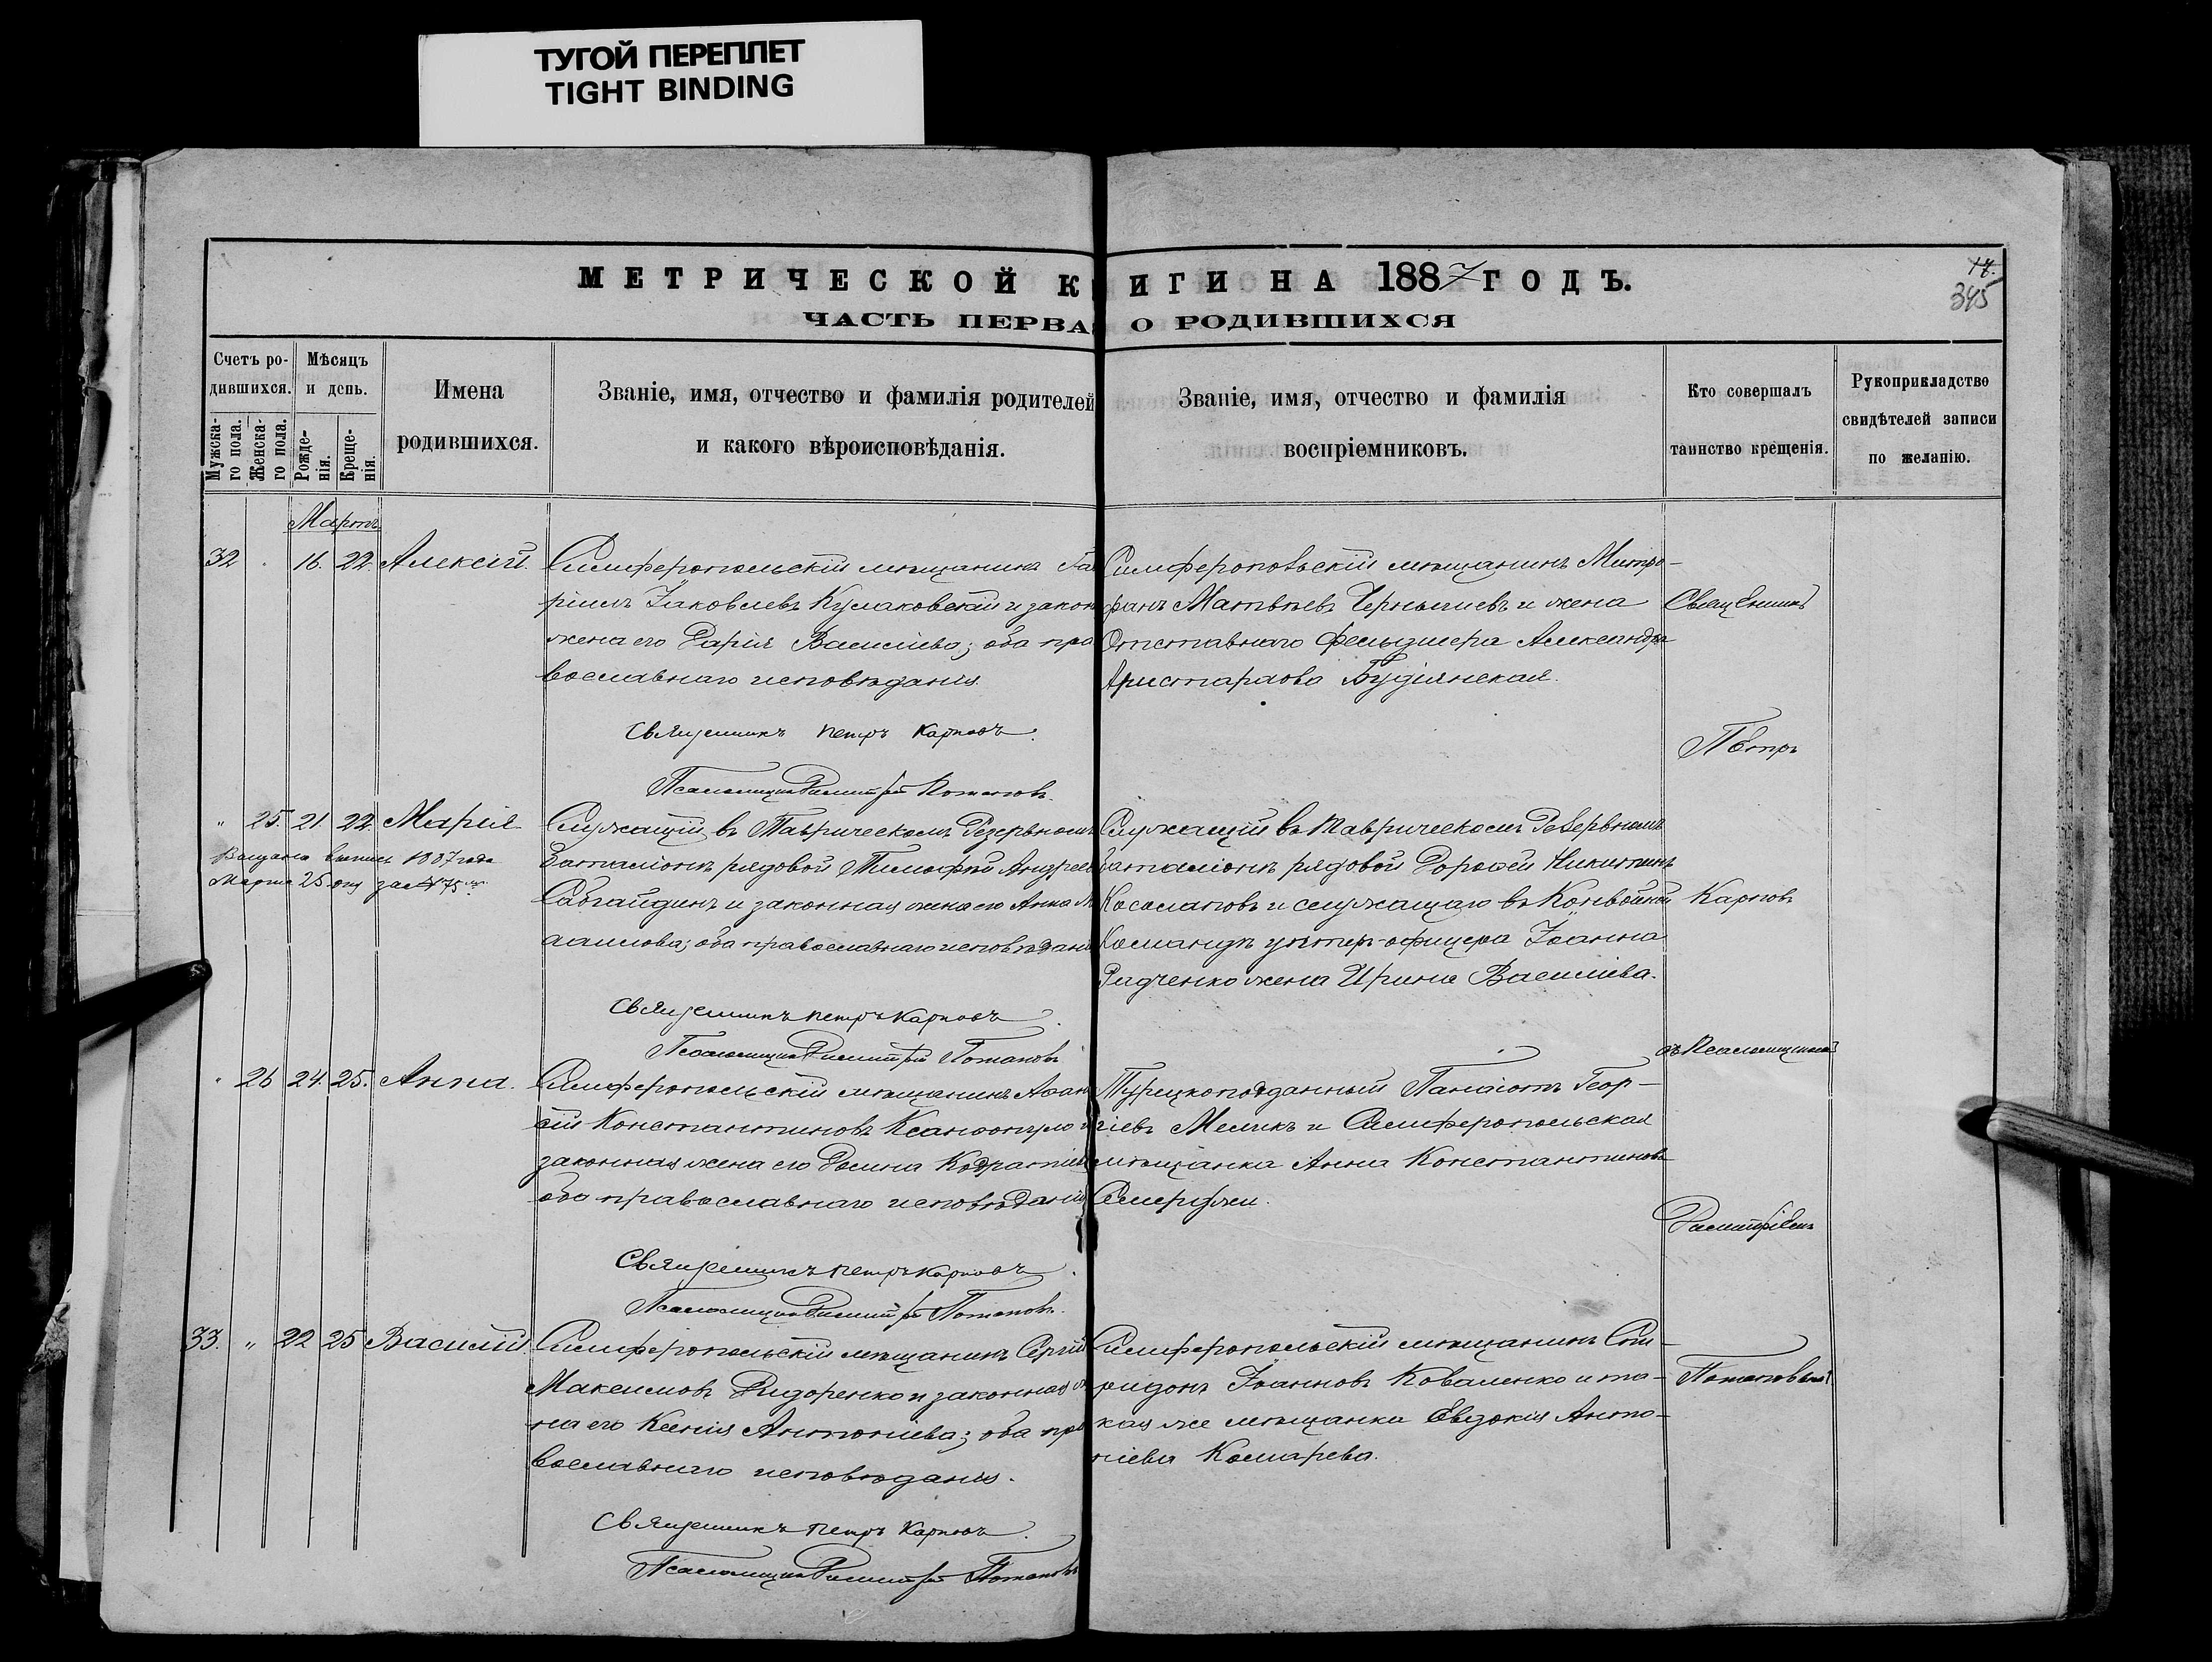 ТУГОЙ ПЕРЕПЛЕТ
TIGHT BINDING
МЕТРИЧЕСКОЙ К ИГИ НА 1887 ГОДЪ.
ЧАСТЬ ПЕРВА О РОДИВШИХСЯ
17.
345
Счетъ ро-
дившихся.
Мужска-
го пола.
Женска-
го пола.
Мѣсяцъ
и день.
Рожде-
нія.
Креще-
нія.
Имена
родившихся.
Званіе, имя, отчество и фамилія родителей
и какого вѣроисповѣданія.
Званіе, имя, отчество и фамилія
воспріемниковъ.
Кто совершалъ
таинство крещенія.
Рукоприкладство
свидѣтелей записи
по желанію.
Мартъ
32 16. 22. Алексій.
Симферопольскій мѣщанинъ Га
ріилъ Іаковлевъ Кулаковскій и закон
жена его Дарія Василіева; оба пра
вославнаго исповѣданія.
Священникъ Петръ Карповъ.
Псаломщикъ Димитрій Потаповъ.
Симферопольскій мѣщанинъ Митро-
фанъ Матвѣевъ Чернышевъ и жена
Отставнаго фельдшера Александра
Аристархова
Священникъ
Петръ
Карповъ
съ Псаломщикомъ
Димитріемъ
Потаповымъ
" 25. 21. 22. Марія
Выдана выпись 1887 года
Марта 25 дня за № 75
Служащій въ Таврическомъ Резервномъ
баталіонѣ рядовой Тимофей Андреев
и законная жена его Анна М
оба православнаго исповѣдан
Священникъ Петръ Карповъ.
Псаломщикъ Димитрій Потаповъ
Служащій въ Таврическомъ Резервномъ
баталіонѣ рядовой Дорофей Никитинъ
Косолаповъ и служащаго въ Конвойной
Командѣ унтеръ-офицера Іоанна
Радченко жена Ирина Василіева.
" 26 24. 25. Анна.
Симферопольскій мѣщанинъ Афан
сій Константиновъ Ксанфопуло и
законная жена его
оба православнаго исповѣданія
Священникъ Петръ Карповъ.
Псаломщикъ Димитрій Потаповъ.
Турецкоподданный Панаіотъ Геор-
гіевъ Меликъ и Симферопольская
мѣщанка Анна Константинова
33. " 22 25 Василій.
Симферопольскій мѣщанинъ Сергій
Максимовъ Сидоренко и законная ж
на его Ксенія Антоніева; оба пра
вославнаго исповѣданія.
Священникъ Петръ Карповъ.
Псаломщикъ Димитрій Потаповъ
Симферопольскій мѣщанинъ Спи-
ридонъ Іоанновъ Коваленко и та-
кая же мѣщанка Евдокія Анто-
ніева Комарева.